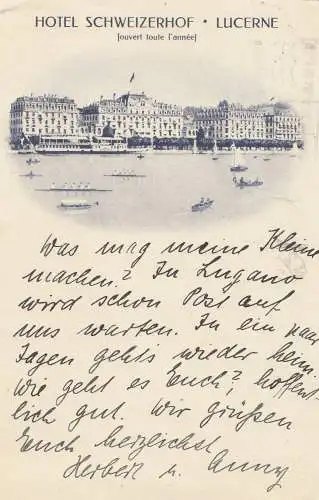 HOTEL SCHWEIZERHOF • LUCERNE
[ouvert toute l'année]
Was mag meine Kleine
machen? In Lugano
wird schon Post auf
uns warten. In ein paar
Tagen gehts wieder heim.
Wie geht es Euch?, hoffent-
lich gut. Wir grüßen
Euch herzlichst
Herbert u. Anny